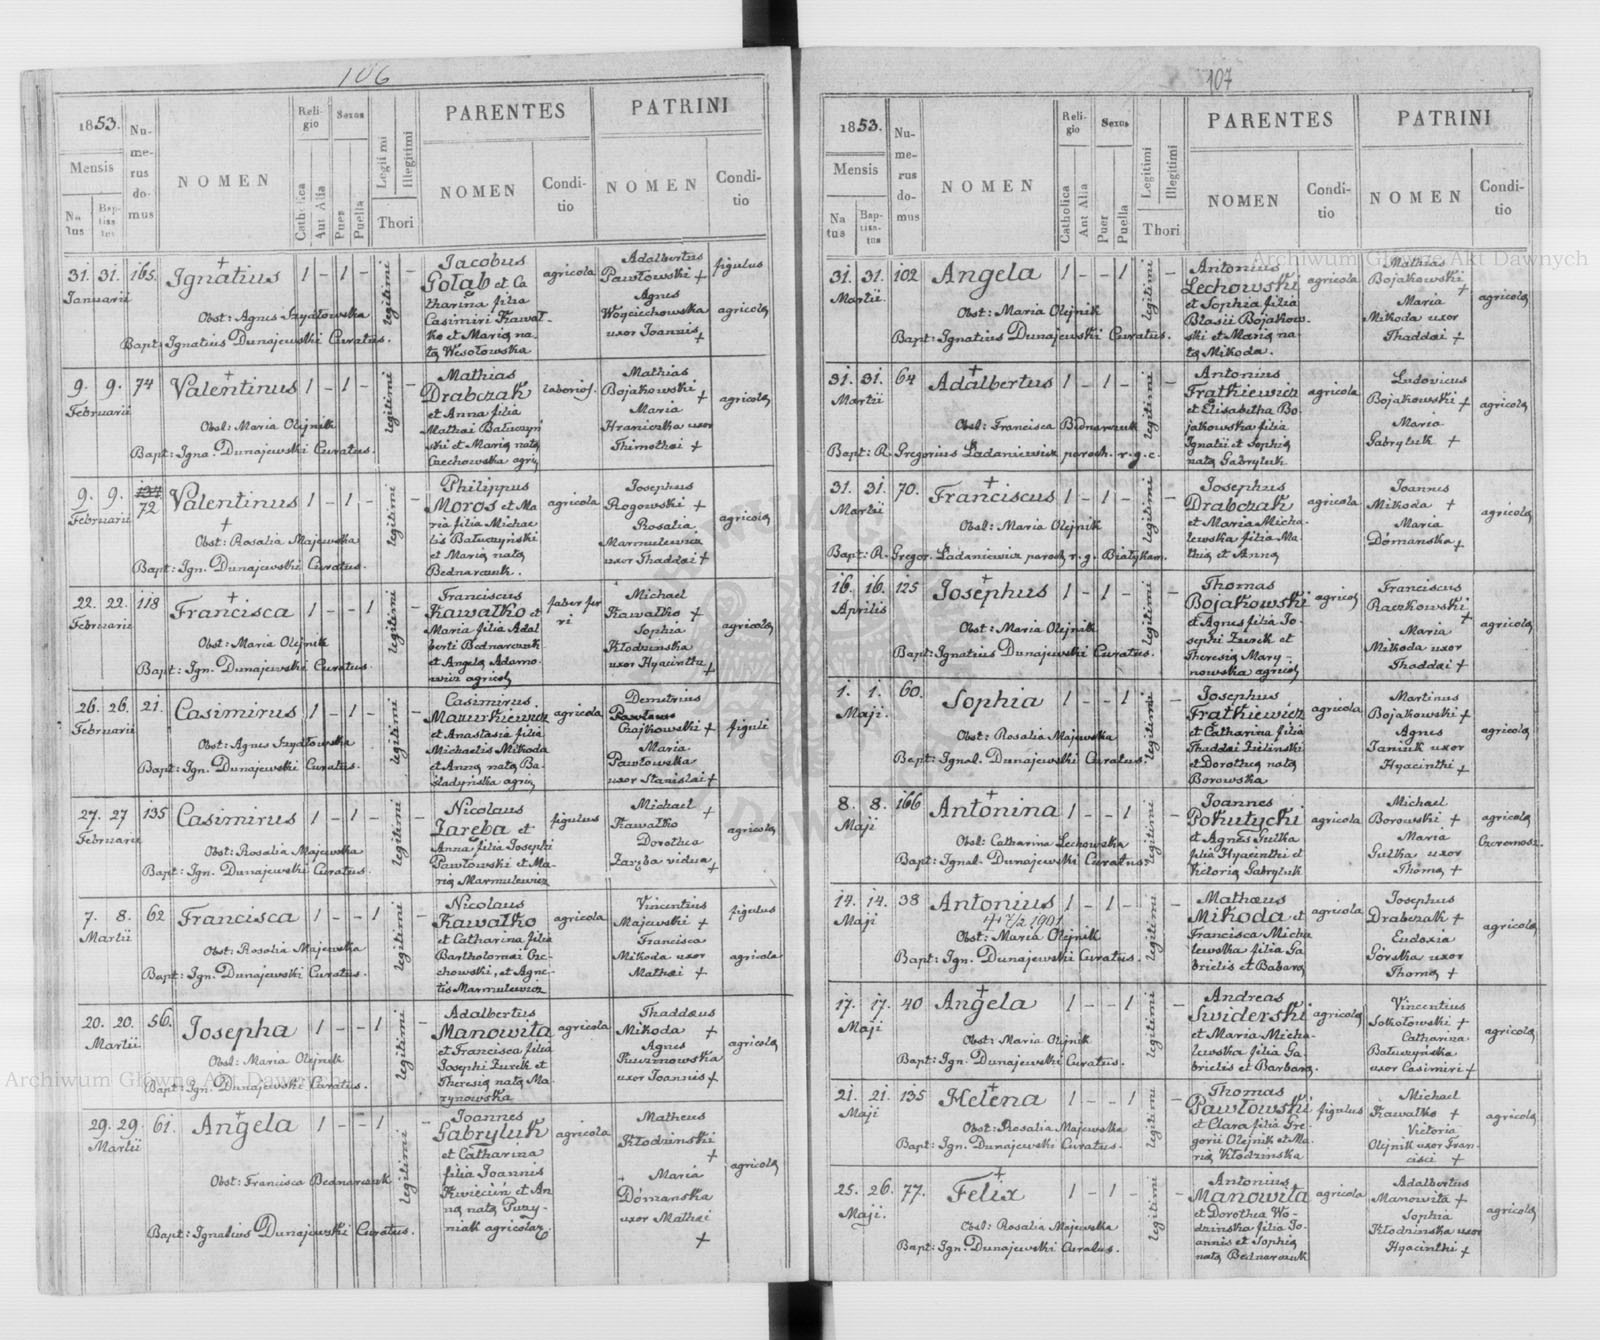 106
1853.
Mensis
Na tus
Bap- tisa tus
Nu- me- rus do- mus
NOMEN
Reli- gio
Catholica
Aut Alia
Sexus
Puer
Puella
Legiti mi
Illegitimi
Thori
PARENTES
NOMEN
Condi- tio
PATRINI
NOMEN
Condi- tio
31. 31. 165. Ignatius 1 – 1 –
Januarii
Obst: Agnes Szydłowska
Bapt: Ignatius Dunajewski Curatus.
legitimi
Jacobus
Gołąb et Ca
tharina filia
Casimiri Kawał-
ko et Maria na-
ta Wesołowska
agricola
Adalbertus
Pawłowski +
Agnes
Woyciechowska
uxor Joannis +
figulus
agricola
9. 9. 74 Valentinus 1 – 1 –
Februarii
Obst: Maria Olejnik
Bapt: Igna. Dunajewski Curatus.
legitimi
Mathias
Drabczak
et Anna filia
Mathai Batuczyń
ski et Maria nata
Czechowska agric
laborios.
Mathias
Bojakowski +
Maria
Hraniczka uxor
Thimothai +
agricola
9. 9. 137 72 Valentinus 1 – 1 –
Februarii
Obst: Rosalia Majewska
Bapt: Ign. Dunajewski Curatus.
legitimi
Philippus
Moros et Ma
ria filia Michae
lis Batuczyński
et Maria nata
Bednarczuk.
agricola
Josephus
Rogowski +
Rosalia
Marmulewicz
uxor Thaddai +
agricola
22. 22. 118 Francisca 1 – – 1
Februarii
Obst: Maria Olejnik
Bapt: Ign. Dunajewski Curatus.
legitimi
Franciscus
Kawałko et
Maria filia Adal
berti Bednarczuk
et Angela Adamo-
wicz agricol
faber fer
ri
Michael
Kawałko +
Sophia
Kłodzinska
uxor Hyacinthi +
agricola
26. 26. 21. Casimirus 1 – 1 –
Februarii
Obst: Agnes Szydłowska
Bapt: Ign. Dunajewski Curatus.
legitimi
Casimirus.
Mazurkiewicz
et Anastasia filia
Michaelis Mikoda
et Anna nata Ba-
śladyńska agric
agricola
Demetrius
Czajkowski +
Maria
Pawłowska
uxor Stanislai +
figuli
27. 27 135 Casimirus 1 – 1 –
Februarii
Obst: Rosalia Majewska
Bapt: Ign. Dunajewski Curatus.
legitimi
Nicolaus
Zaręba et
Anna filia Josephi
Pawłowski et Ma-
ria Marmulewicz
figulus
Michael +
Kawałko
Dorothea
Zaręba vidua +
agricola
7. 8. 62 Francisca 1 – – 1
Martii
Obst: Rosalia Majewska
Bapt: Ign. Dunajewski Curatus.
legitimi
Nicolaus
Kawałko
et Catharina filia
Bartholomai Cze-
chowski, et Agne-
tis Marmulewicz
agricola
Vincentius
Majewski +
Francisca
Mikoda uxor
Mathai +
figulus
agricola
20. 20. 56. Josepha 1 – – 1
Martii
Obst: Maria Olejnik
Bapt: Ign. Dunajewski Curatus.
legitimi
Adalbertus
Manowita
et Francisca filia
Josephi Zurek et
Theresia nata Ma-
rynowska
agricola
Thaddæus
Mikoda +
Agnes
Kuczmowska
uxor Joannis +
agricola
29. 29. 61. Angela 1 – – 1
Martii
Obst: Francisca Bednarczuk
Bapt: Ignatius Dunajewski Curatus.
legitimi
Joannes
Gabryluk
et Catharina
filia Joannis
Kwieciń et An
na nata Puzy-
niak agricolar.
agricola
Matheus
Kłodzinski
+
Maria
Dómanska
uxor Mathai
+
agricola
107
1853.
Mensis
Na tus
Bap- tisa- tus
Nu- me- rus do- mus
NOMEN
Reli- gio
Catholica
Aut Alia
Sexus
Puer
Puella
Legitimi
Illegitimi
Thori
PARENTES
NOMEN
Condi- tio
PATRINI
NOMEN
Condi- tio
31. 31. 102 Angela 1 – – 1
Martii
Obst: Maria Olejnik
Bapt: Ignatius Dunajewski Curatus.
legitimi
Antonius
Lechowski
et Sophia filia
Błasii Bojakow-
ski et Maria na-
ta Mikoda.
agricola
Mathias
Bojakowski +
Maria
Mikoda uxor
Thaddai +
agricola
31. 31. 64 Adalbertus 1 – 1 –
Martii
Obst: Francisca Bednarczuk
Bapt: R. Gregorius Ładaniewicz paroch. r. g. c.
legitimi
Antonius
Fratkiewicz
et Elisabetha Bo-
jakowska filia
Ignatii et Sophia
nata Gabryluk
agricola
Ludovicus
Bojakowski +
Maria
Gabryluk +
agricola
31. 31. 70. Franciscus 1 – 1 –
Martii
Obst: Maria Olejnik
Bapt: R. Gregor. Ładaniewicz paroch r. g. Białykam.
legitimi
Josephus
Drabczak
et Maria Micha-
lewska filia Ma-
thia et Anna
agricola
Joannes
Mikoda +
Maria
Dómanska +
agricola
16. 16. 125 Josephus 1 – 1 –
Aprilis
Obst: Maria Olejnik
Bapt: Ignatius Dunajewski Curatus.
legitimi
Thomas
Bojakowski
et Agnes filia Jo-
sephi Zurek et
Theresia Mary-
nowska agricol
agricol
Franciscus
Raczkowski +
Maria
Mikoda uxor
Thaddai +
agricola
1. 1. 60. Sophia 1 – – 1
Maji.
Obst: Rosalia Majewska
Bapt: Ignat. Dunajewski Curatus.
legitimi
Josephus
Fratkiewicz
et Catharina filia
Thaddai Zilinski
et Dorothea nata
Borowska
agricola
Martinus
Bojakowski +
Agnes
Janiuk uxor
Hyacinthi +
agricola
8. 8. 166 Antonina 1 – – 1
Maji
Obst: Catharina Lechowska
Bapt: Ignat. Dunajewski Curatus.
legitimi
Joannes
Pokutycki
et Agnes Gulka
filia Hyacinthi et
Victoria Gabryluk
agricola
Michael
Borowski +
Maria
Gulka uxor
Thoma +
agricola
Czeremosz.
14. 14. 38 Antonius 1 – 1 –
Maji
+ 17/2 1901
Obst: Maria Olejnik
Bapt: Ign. Dunajewski Curatus.
legitimi
Mathæus
Mikoda et
Francisca Micha
lewska filia Ga-
brielis et Babara
agricola
Josephus
Drabczak +
Eudoxia
Górska uxor
Thoma +
agricola
17. 17. 40 Angela 1 – – 1
Maji
Obst: Maria Olejnik
Bapt: Ign. Dunajewski Curatus.
legitimi
Andreas
Swiderski
et Maria Micha-
lewska filia Ga-
brielis et Barbara.
agricola
Vincentius
Sokołowski +
Catharina
Batuszyńska
uxor Casimiri +
agricola
21. 21. 135 Helena 1 – – 1
Maji
Obst: Rosalia Majewska
Bapt: Ign. Dunajewski Curatus.
legitimi
Thomas
Pawłowski
et Clara filia Gre-
gorii Olejnik et Ma-
ria Kłodzinska
figulus
Michael
Kawałko +
Victoria
Olejnik uxor Fran-
cisci +
agricola
25. 26. 77. Felix 1 – 1 –
Maji.
Obst: Rosalia Majewska
Bapt: Ign. Dunajewski Curatus.
legitimi
Antonius
Manowita
et Dorothea Wo-
dzinska filia Jo-
annis et Sophia
nata Bednarczuk
agricola
Adalbertus
Manowita +
Sophia
Kłodzinska uxor
Hyacinthi +
agricola
Archiwum Główne Akt Dawnych
Archiwum Główne Akt Dawnych